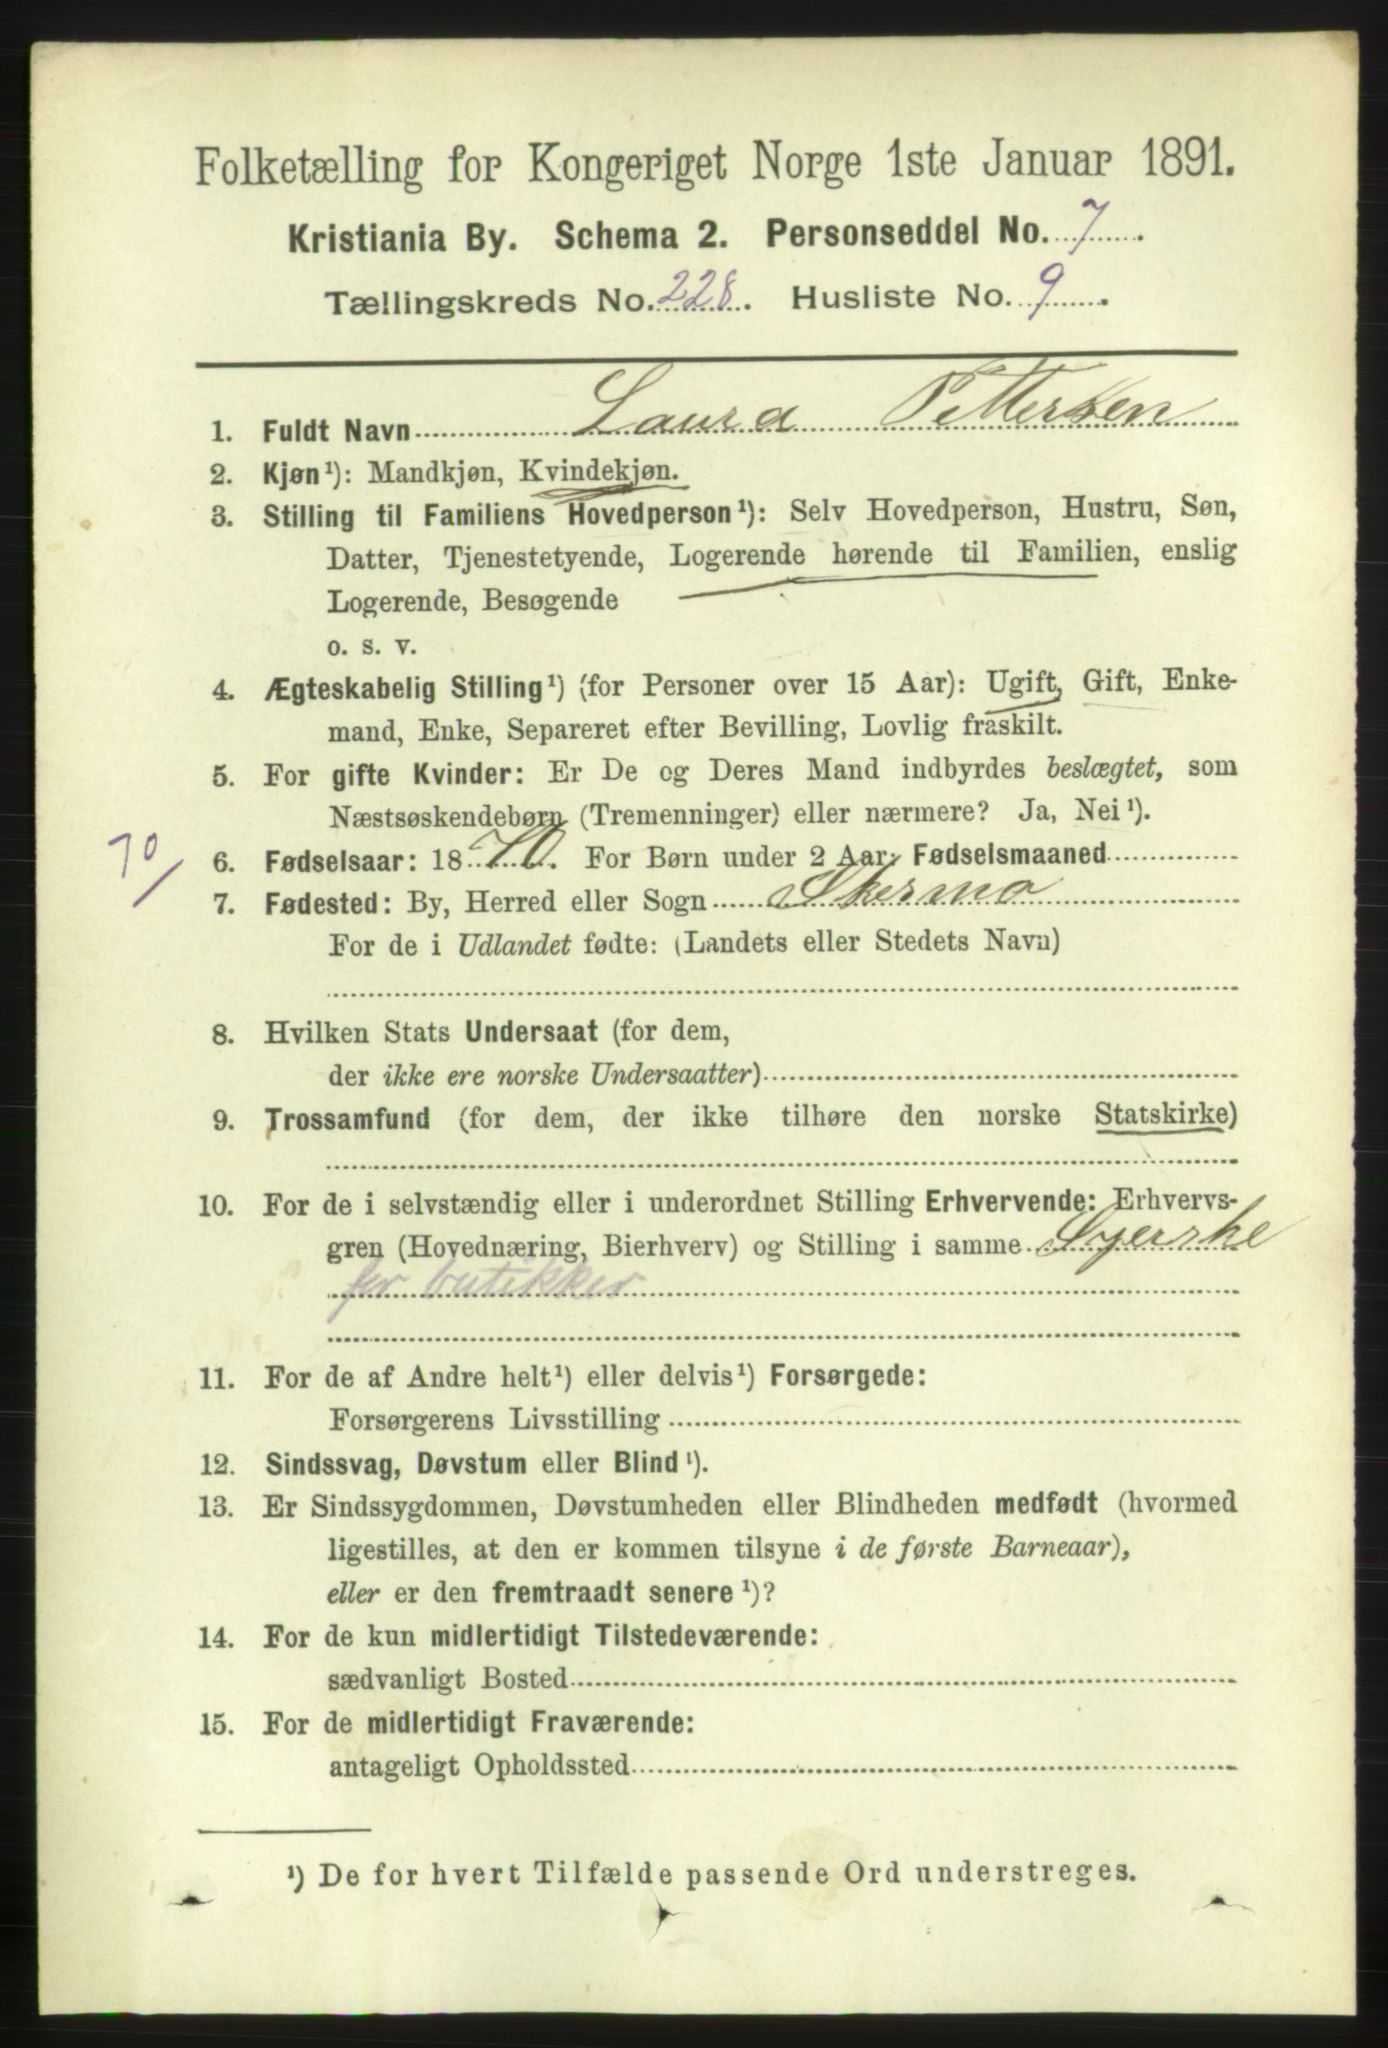 Folketælling for Kongeriget Norge 1ste Januar 1891.
Kristiania By. Schema 2. Personseddel No. 7.
Tællingskreds No. 228. Husliste No. 9.
1. Fuldt Navn Laura Pettersen
2. Kjøn¹): Mandkjøn, Kvindekjøn.
3. Stilling til Familiens Hovedperson¹): Selv Hovedperson, Hustru, Søn,
Datter, Tjenestetyende, Logerende hørende til Familien, enslig
Logerende, Besøgende
o. s. v.
4. Ægteskabelig Stilling¹) (for Personer over 15 Aar): Ugift, Gift, Enke-
mand, Enke, Separeret efter Bevilling, Lovlig fraskilt.
5. For gifte Kvinder: Er De og Deres Mand indbyrdes beslægtet, som
Næstsøskendebørn (Tremenninger) eller nærmere? Ja, Nei¹).
70/
6. Fødselsaar: 1870. For Børn under 2 Aar: Fødselsmaaned
7. Fødested: By, Herred eller Sogn Skermo
For de i Udlandet fødte: (Landets eller Stedets Navn)
8. Hvilken Stats Undersaat (for dem,
der ikke ere norske Undersaatter)
9. Trossamfund (for dem, der ikke tilhøre den norske Statskirke)
10. For de i selvstændig eller i underordnet Stilling Erhvervende: Erhvervs-
gren (Hovednæring, Bierhverv) og Stilling i samme Syerske
for butikker
11. For de af Andre helt¹) eller delvis¹) Forsørgede:
Forsørgerens Livsstilling
12. Sindssvag, Døvstum eller Blind¹).
13. Er Sindssygdommen, Døvstumheden eller Blindheden medfødt (hvormed
ligestilles, at den er kommen tilsyne i de første Barneaar),
eller er den fremtraadt senere¹)?
14. For de kun midlertidigt Tilstedeværende:
sædvanligt Bosted
15. For de midlertidigt Fraværende:
antageligt Opholdssted
¹) De for hvert Tilfælde passende Ord understreges.